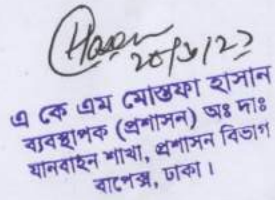 এ কে এম মোস্তফা হাসান
ব্যবস্থাপক (প্রশাসন) অঃ দাঃ
যানবাহন শাখা, প্রশাসন বিভাগ
বাপেক্স, ঢাকা।